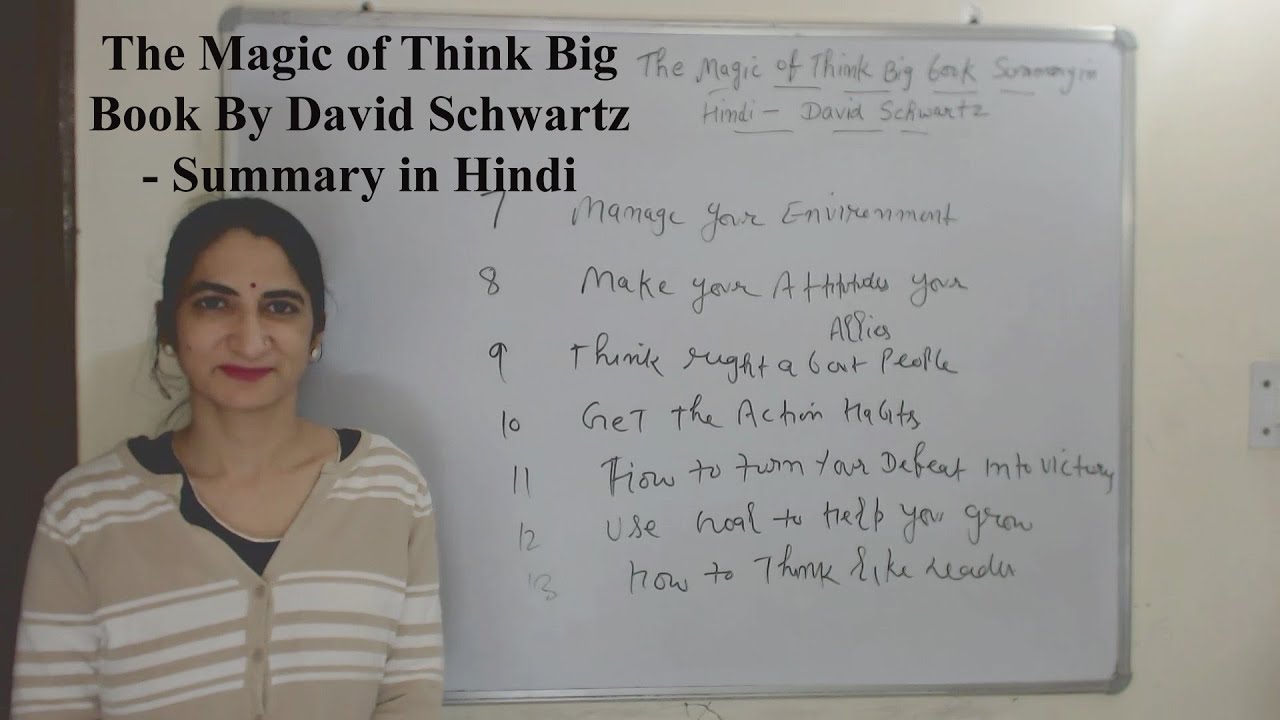 The Magic of Think Big
Book By David Schwartz
- Summary in Hindi
The Magic of Think Big book Summary in
Hindi - David Schwartz
7 Manage your Environment
8 Make your Attitudes your
Allies
9 Think right about People
10 GeT The Action Habits
11 How to turn Your Defeat into victory
12 Use Goal to help you grow
13 How to Think like Leader